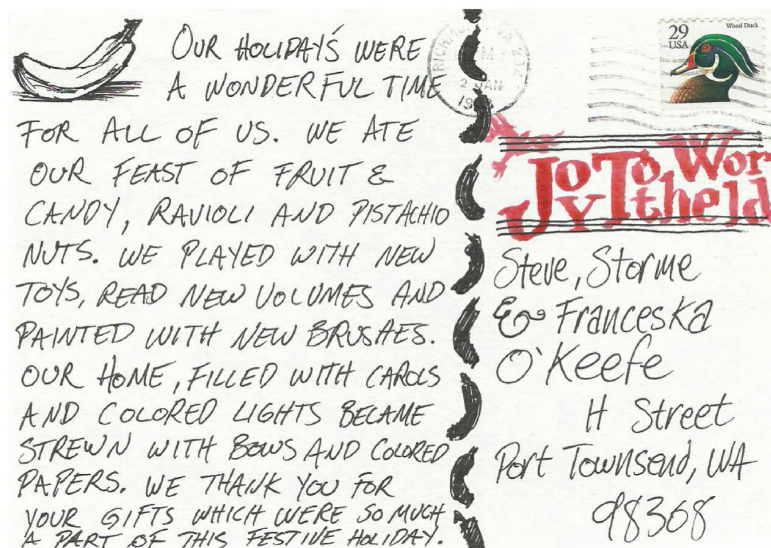 OUR HOLIDAY'S WERE
A WONDERFUL TIME
FOR ALL OF US. WE ATE
OUR FEAST OF FRUIT &
CANDY, RAVIOLI AND PISTACHIO
NUTS. WE PLAYED WITH NEW
TOYS, READ NEW VOLUMES AND
PAINTED WITH NEW BRUSHES.
OUR HOME, FILLED WITH CAROLS
AND COLORED LIGHTS BECAME
STREWN WITH BOWS AND COLORED
PAPERS. WE THANK YOU FOR
YOUR GIFTS WHICH WERE SO MUCH
A PART OF THIS FESTIVE HOLIDAY.
2 JAN
Wood Duck
29
USA
JOY To the World
Steve, Storme
& Franceska
O'Keefe
H Street
Port Townsend, WA
98368